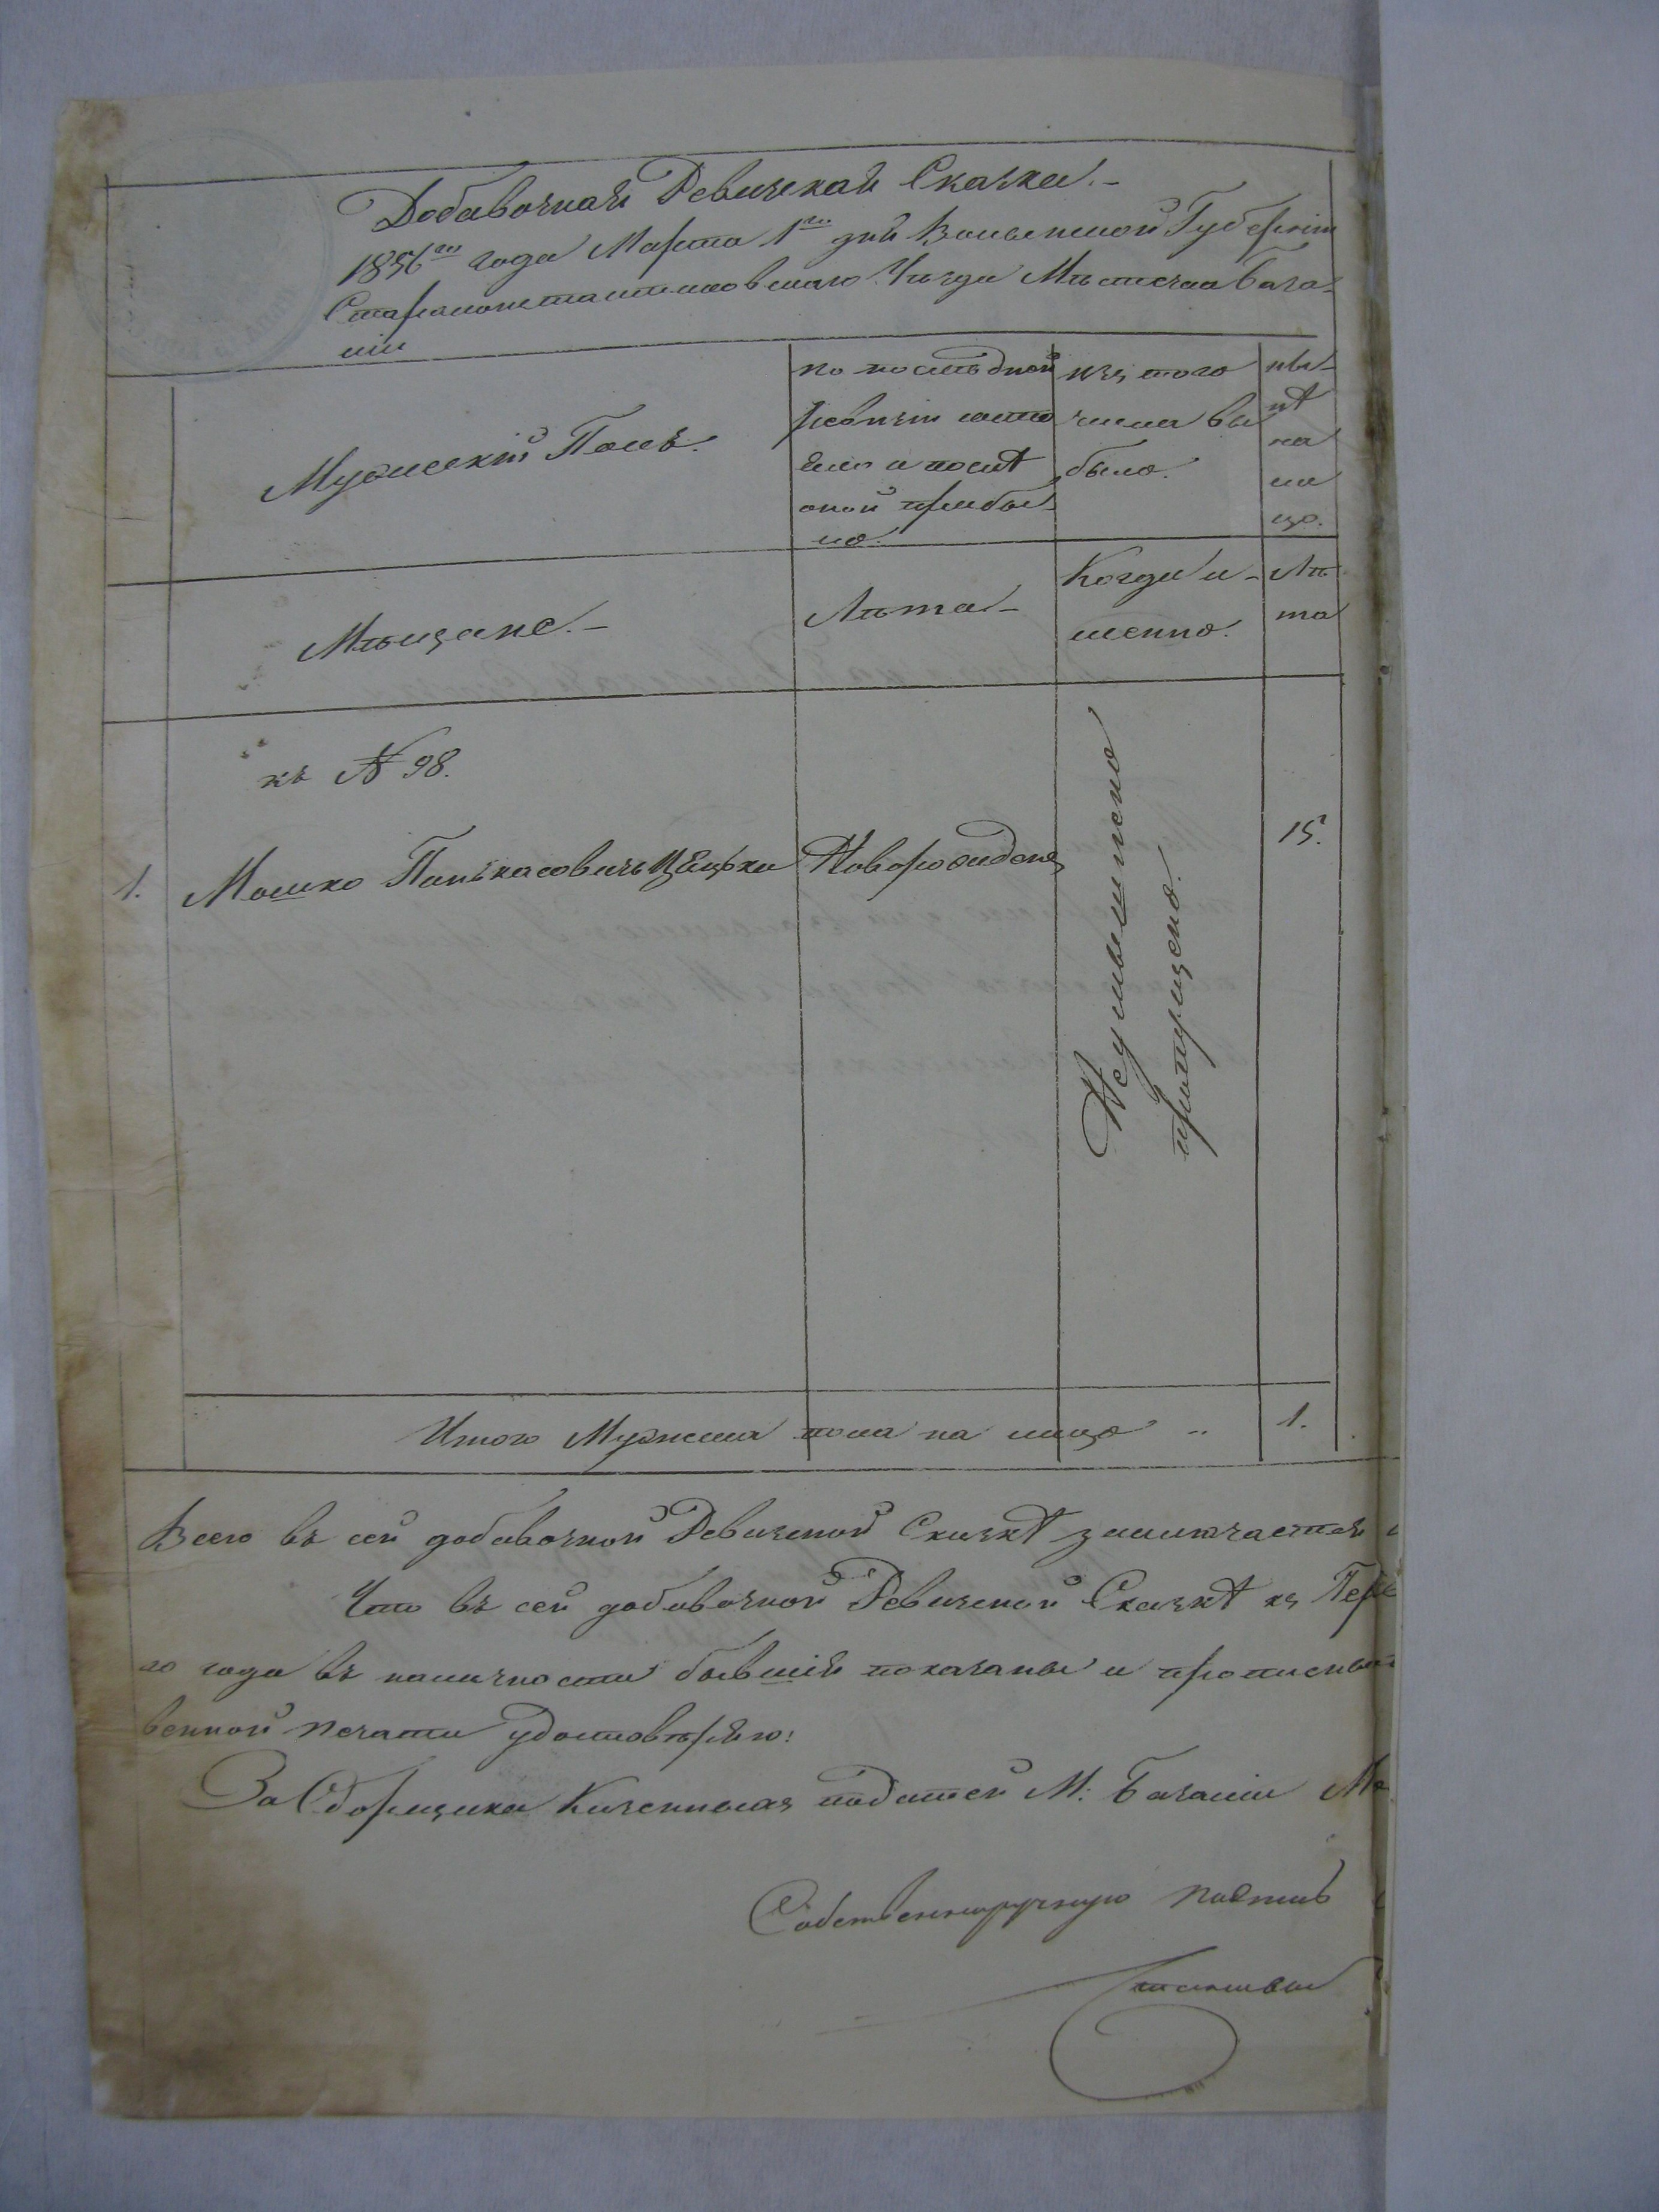 Добавочная Ревизская Сказка.-
1856го года Марта 1го дня Волынской Губерніи
Староконстантиновскаго Уѣзда Мѣстечка База-
ліи
Мужескій Полъ.
по послѣдней
ревизіи состо
яло и послѣ
оной прибы-
ло.
изъ того
числа вы
было.
ны-
нѣ
на
ли
цо.
Мѣщане.-
Лѣта-
Когда и-
менно.
Лѣ
та
къ № 98.
1. Мошко Пинькасовичъ Новорожденъ 15.
Неумышленно
пропущено.
Итого Мужеска пола на лицо .. 1.
Всего въ сей добавочной Ревизской Сказкѣ заключается
Что въ сей добавочной Ревизской Сказкѣ къ Пер
го года въ наличности бывшія показаны и прописны
венной печати удостовѣряю:
За Сборщика Казенныхъ податей М: Базаліи Мо
Собственноручную подпись